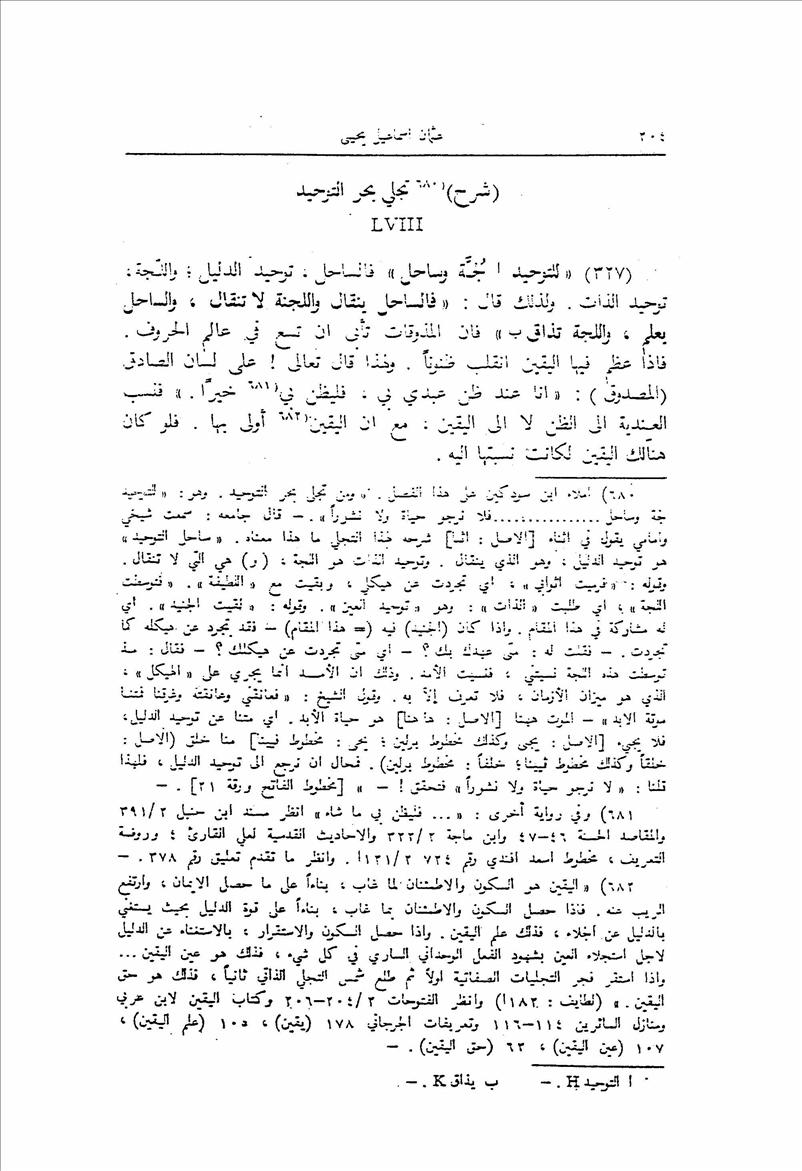 ٣٠٤ عثمان اسماعيل يحيى
(شرح)⁽⁶⁸⁰ تجلي بحر التوحيد
LVIII
(٣٢٧) « للتوحيد ا لُجَّة وساحل » فالساحل ، توحيد الدليل ؛ واللّجة ،
توحيد الذات . ولذلك قال : « فالساحل ينقال واللجنة لا تنقال ، والساحل
يعلم ، واللجة تذاق ب » فان المذوقات تأبى ان تسع في عالم الحروف .
فاذا عظم فيها اليقين انقلب ظنوناً . ولهذا قال تعالى ! على لسان الصادق
(المصدوق) : « انا عند ظن عبدي بي ، فليظن بي⁽٦٨١ خيرًا . » فنسب
العندية الى الظن لا الى اليقين ، مع ان اليقين⁽٦٨٢ أولى بها . فلو كان
هنالك اليقين لكانت نسبتها اليه .
٦٨٠) املاء ابن سودكين على هذا الفصل . « ومن تجلي بحر التوحيد . وهو : « للتوحيد
جة وساحل ...............فلا نرجو حياة ولا نشوراً » . — قال جامعه : سمعت شيخي
وامامي يقول في اثناء [الاصل : اثنا] شرحه لهذا التجلي ما هذا معناه . « ساحل التوحيد »
هو توحيد الدليل ، وهو الذي ينقال . وتوحيد الذات هو اللجة ، (و) هي التي لا تنقال .
وقوله : « فرميت اثوابي » ، اي تجردت عن هيكلي ، وبقيت مع « اللطيفة » . « فتوسطت
اللجة » ، اي طلبت « الذات » : وهو « توحيد العين » . وقوله : « لقيت الجنيد » . اي
له مشاركة في هذا المقام . واذا كان (الجنيد) فيه (= هذا المقام) — فقد تجرد عن هيكله كما
تجردت . — فقلت له : متى عهدك بك ؟ — اي متى تجردت عن هيكلك ؟ — فقال : منذ
توسطت هذه اللجة نسيتني ، فنسيت الأمد . وذلك ان الأمد انما يجري على « الهيكل » ،
الذي هو ميزان الأزمان ، فلا تعرف إلاّ به . وقول الشيخ : « فعانقني وعانقته وغرقنا فمتنا
موتة الابد » — الموت ههنا [الاصل : هاهنا] هو حياة الأبد . اي متنا عن توحيد الدليل ،
فلا يجيء [الاصل : يجى وكذلك مخطوط برلين ؛ يحى : مخطوط فيينا] منا خلق (الاصل :
خلقاً وكذلك مخطوط فيينا؛ خلفاً : مخطوط برلين) . فمحال ان نرجع الى توحيد الدليل ، فلهذا
قلنا : « لا نرجو حياة ولا نشوراً » فتحقق ! — » [مخطوط الفاتح ورقة ٢١] . —
٦٨١) وفي رواية أخرى : « ... فليظن بي ما شاء » انظر مسند ابن حنبل ٣٩١/٢
والمقاصد الحسنة ٤٦–٤٧ وابن ماجة ٣٢٢/٢ والاحاديث القدسية لعلي القارئ ٤ وروضة
التعريف ، مخطوط اسعد افندي رقم ٧٢٤ ١٣١/٢ا . وانظر ما تقدم تعليق رقم ٣٧٨ . —
٦٨٢) « اليقين هو السكون والاطمئنان لما غاب ، بناءاً على ما حصل الايمان ، وارتفع
الريب عنه . فاذا حصل السكون والاطمئنان بما غاب ، بناءاً على قوة الدليل بحيث يستغني
بالدليل عن الجلاء ، فذلك علم اليقين . واذا حصل السكون والاستقرار ، بالاستغناء عن الدليل
لاجل استجلاء العين بشهود الفعل الوحداني الساري في كل شيء ، فذلك هو عين اليقين...
واذا استقر فجر التجليات الصفاتية اولاً ثم طلع شمس التجلي الذاتي ثانياً ، فذلك هو حق
اليقين . » (لطايف : ١٨٢ا) وانظر الفتوحات ٢٠٤/٢–٢٠٦ وكتاب اليقين لابن عربي
ومنازل السائرين ١١٤–١١٦ وتعريفات الجرجاني ١٧٨ (يقين) ، ١٠٥ (علم اليقين) ،
١٠٧ (عين اليقين) ، ٦٣ (حق اليقين) . —
ا التوحيد H. — ب يذاق K. —